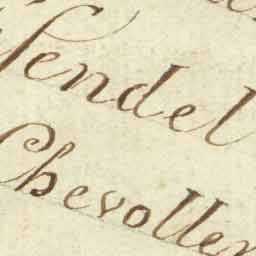 Sendel
Chevoller